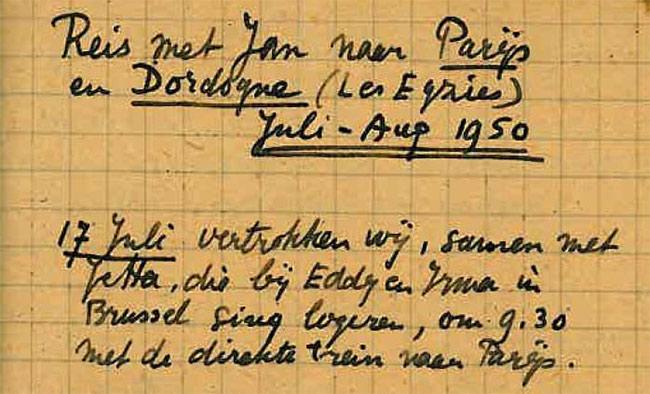 Reis met Jan naar Parijs
en Dordogne (Les Eyzies)
Juli - Aug 1950
17 Juli vertrokken wij, samen met
Jetta, die bij Eddy en Irma in
Brussel ging logeren, om 9.30
met de direkte trein naar Parijs.